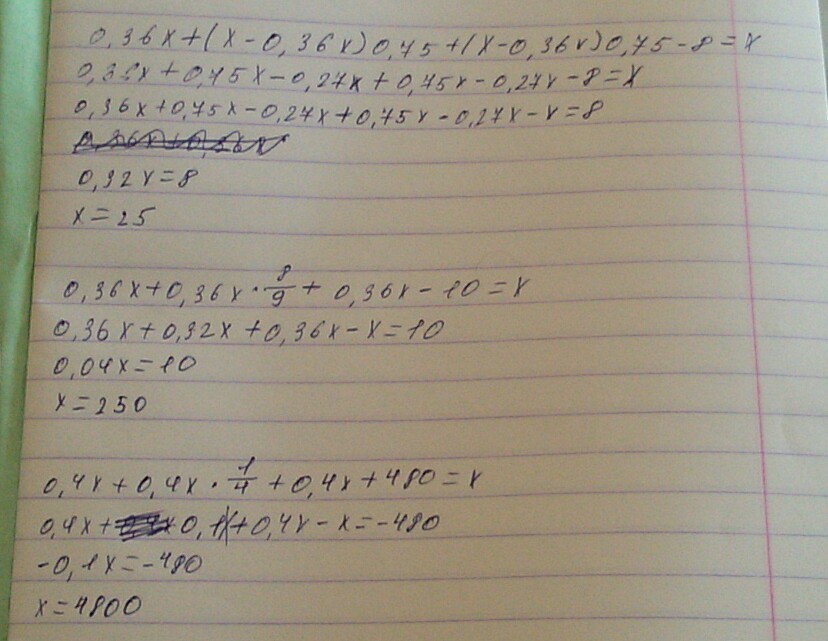 0,36x+(x-0,36x)0,75+(x-0,36x)0,75-8=x
0,36x+0,75x-0,27x+0,75x-0,27x-8=x
0,36x+0,75x-0,27x+0,75x-0,27x-x=8
0,32x=8
x=25
0,36x+0,36x·8/9+0,36x-10=x
0,36x+0,32x+0,36x-x=10
0,04x=10
x=250
0,4x+0,4x·1/4+0,4x+480=x
0,4x+0,1x+0,4x-x=-480
-0,1x=-480
x=4800